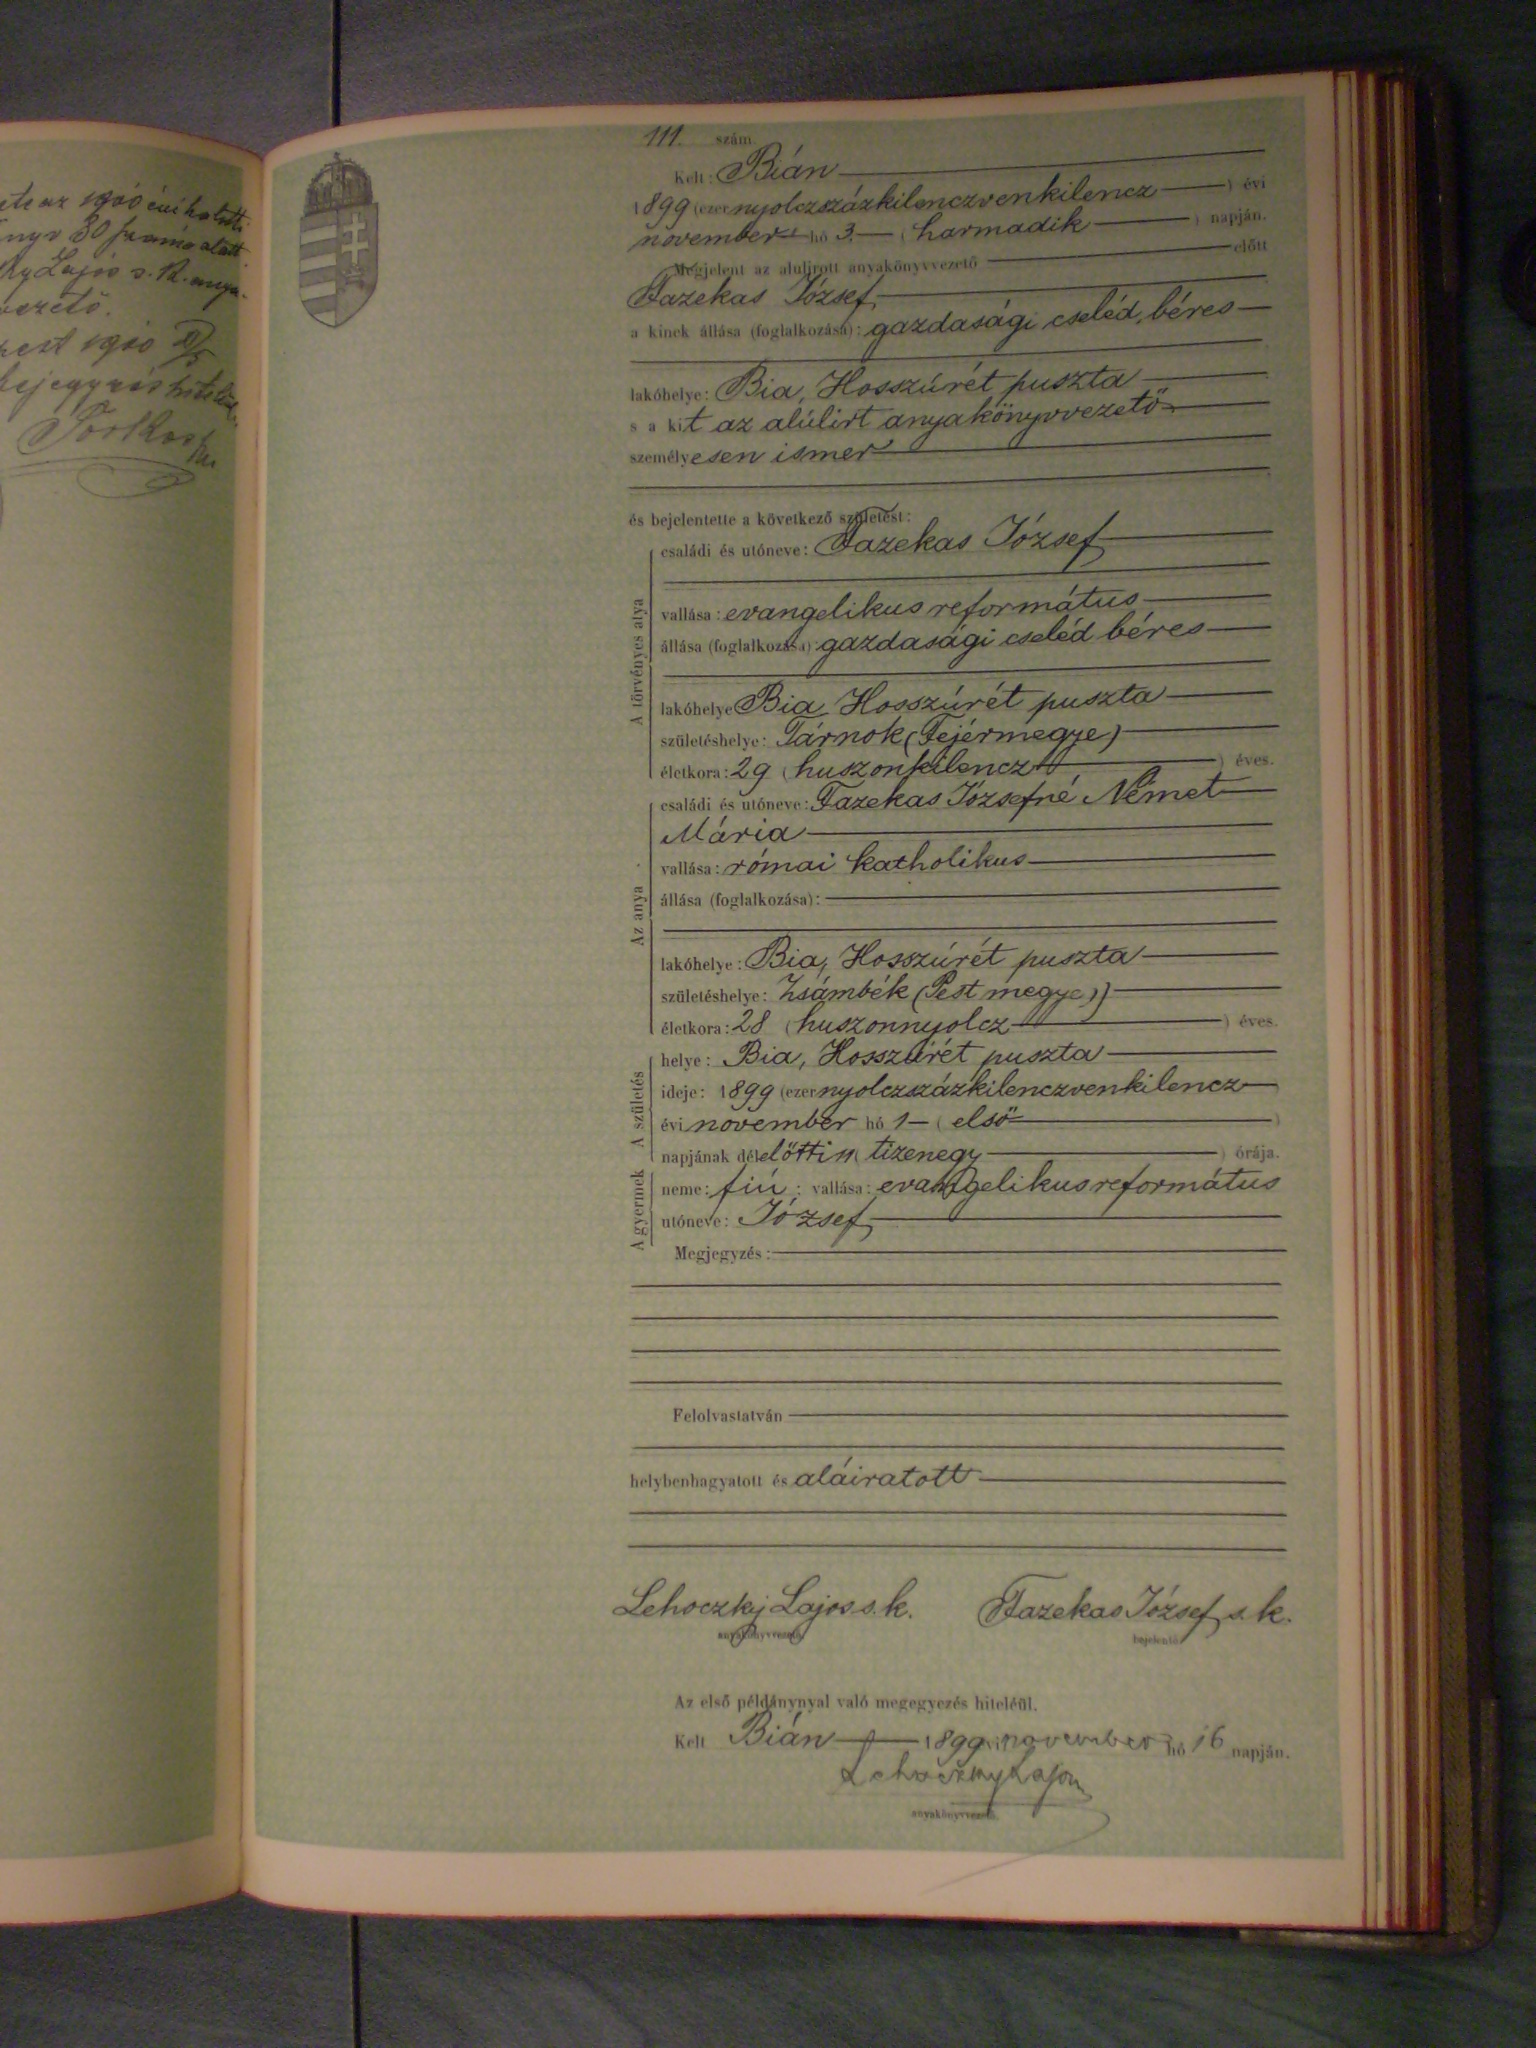 az 1900 évi halotti
80 szám alatt
Lajos s. k. anya-
vezető.
pest 1900
bejegyzés
111. szám.
Kelt: Bián
1899 (ezernyolczszázkilenczvenkilencz) évi
november hó 3. (harmadik) napján.
Megjelent az alulirott anyakönyvvezető előtt
Fazekas József,
a kinek állása (foglalkozása): gazdasági cseléd, béres
lakóhelye: Bia, Hosszúrét puszta
s a kit az alúlirt anyakönyvvezető
személyesen ismer
és bejelentette a következő születést:
A törvényes atya
családi és utóneve: Fazekas József
vallása: evangelikus református
állása (foglalkozása): gazdasági cseléd béres
lakóhelye Bia, Hosszúrét puszta
születéshelye: Tárnok (Fejérmegye)
életkora: 29 (huszonkilencz) éves.
Az anya
családi és utóneve: Fazekas Józsefné Német
Mária
vallása: római katholikus
állása (foglalkozása):
lakóhelye: Bia, Hosszúrét puszta
születéshelye: Zsámbék (Pest megye)
életkora: 28 (huszonnyolcz) éves.
A születés
helye: Bia, Hosszúrét puszta
ideje: 1899 (ezernyolczszázkilenczvenkilencz
évi november hó 1 (első)
napjának délelőtti 11 (tizenegy) órája.
A gyermek
neme: fiú; vallása: evangelikus református
utóneve: József
Megjegyzés:
Felolvastatván
helybenhagyatott és aláiratott
Lehoczky Lajos s. k. Fazekas József s. k.
anyakönyvvezető bejelentő
Az első példánynyal való megegyezés hiteléül.
Kelt Bián 1899 november hó 16 napján.
Lehoczky Lajos
anyakönyvvezető.